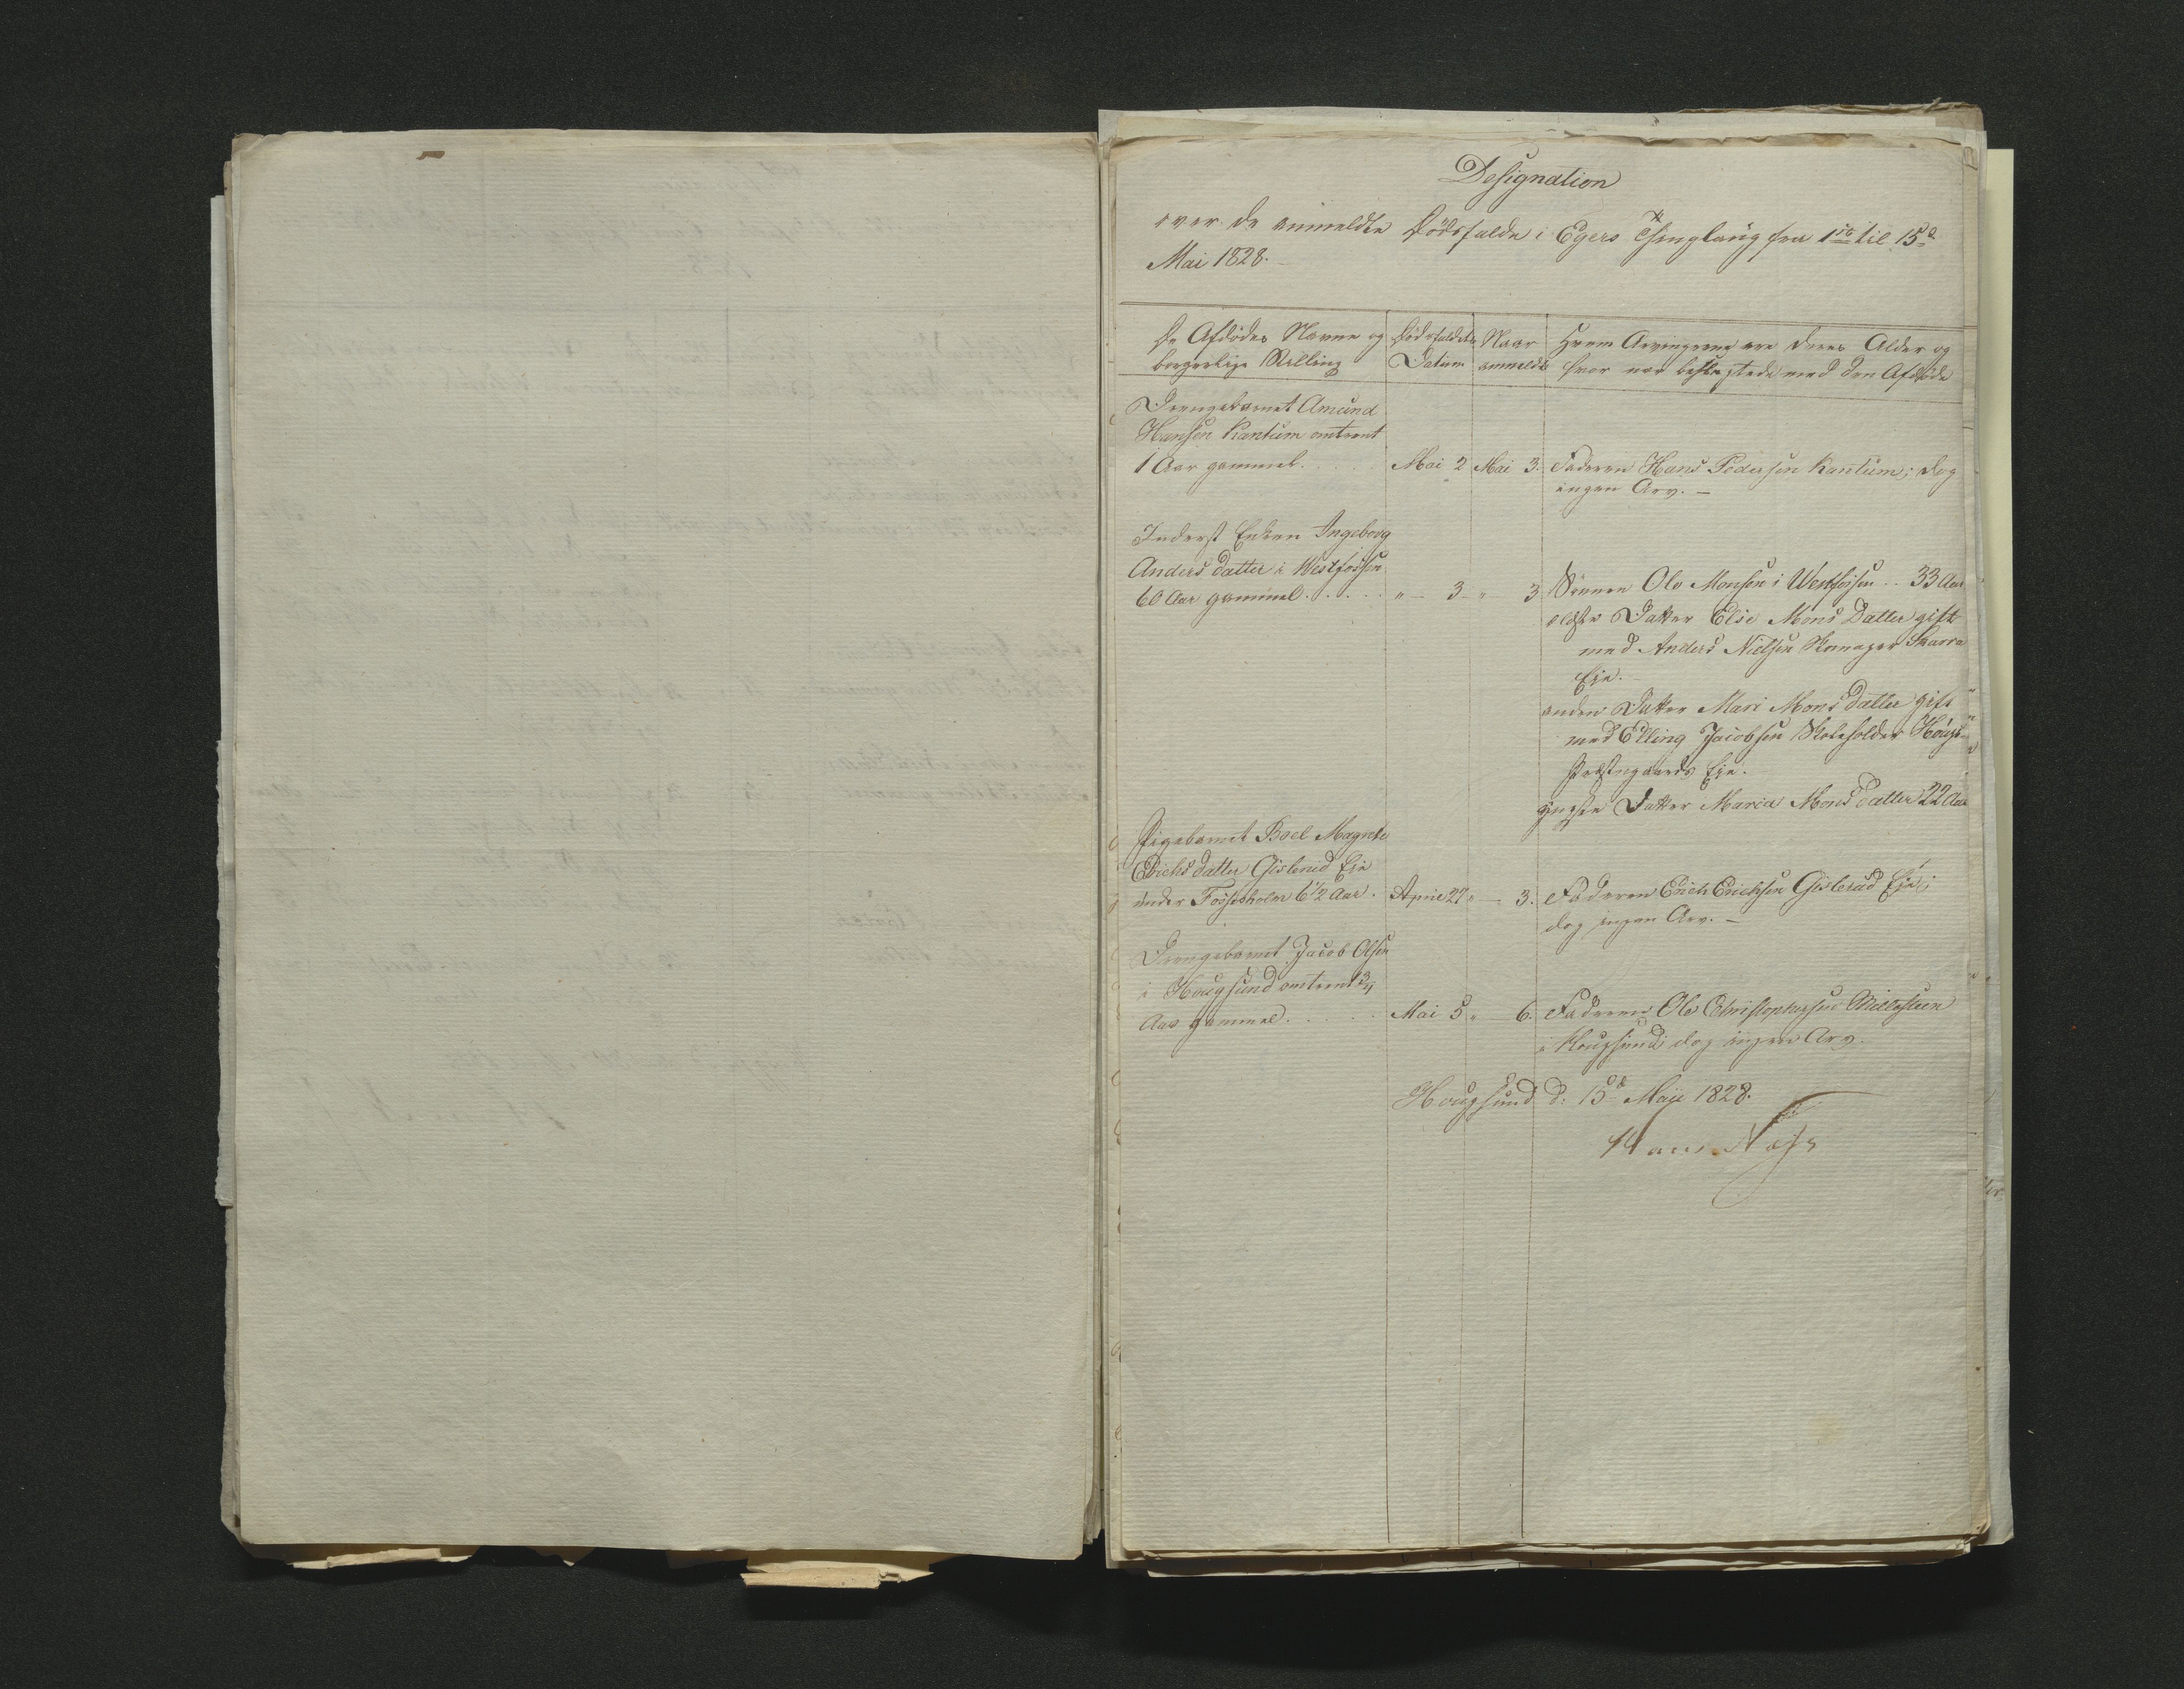 Designation
over de anmeldte Dødsfalde i Egers Thinglaug fra 1ste til 15de
Mai 1828.
De Afdødes Navne og
borgerlige Stilling
Dødsfaldets
Datum
Naar
anmeldt
Hvem Arvingerne ere deres Alder og
hvor nær beslegtede med den Afdøde
Drengebarnet Amund
Hansen Kantum omtrent
1 Aar gammel. . . . . Mai 2 Mai 3. Faderen Hans Pedersen Kantum; dog
ingen Arv. —
Inderst Enken Ingeborg
Anders Datter i Westfossen
60 Aar gammel. . . . . " — 3 — " 3 Sønnen Ole Monsen i Westfossen . . 33 Aar
eldste Datter Else Mons Datter gift
med Anders Nielsen Skomager Skarra
Eje.
anden Datter Mari Mons Datter gift
med Elling Jacobsen Skoleholder Hougs
Præstegaards Eje.
yngste Datter Maria Mons Datter 22 Aar
Pigebarnet Boel Magrete
Erichs Datter Gislerud Eje
under Fossesholm 6 1/2 Aar. April 27 " — 3. Faderen Erich Erichsen Gislerud Eje;
dog ingen Arv. —
Drengebarnet Jacob Olsen
i Hougsund omtrent 3/4
Aar gammel. . . . . Mai 5 " — 6. Faderen Ole Christophersen
i Hougsund dog ingen Arv.
Hougsund d: 15de Maji 1828.
Hans